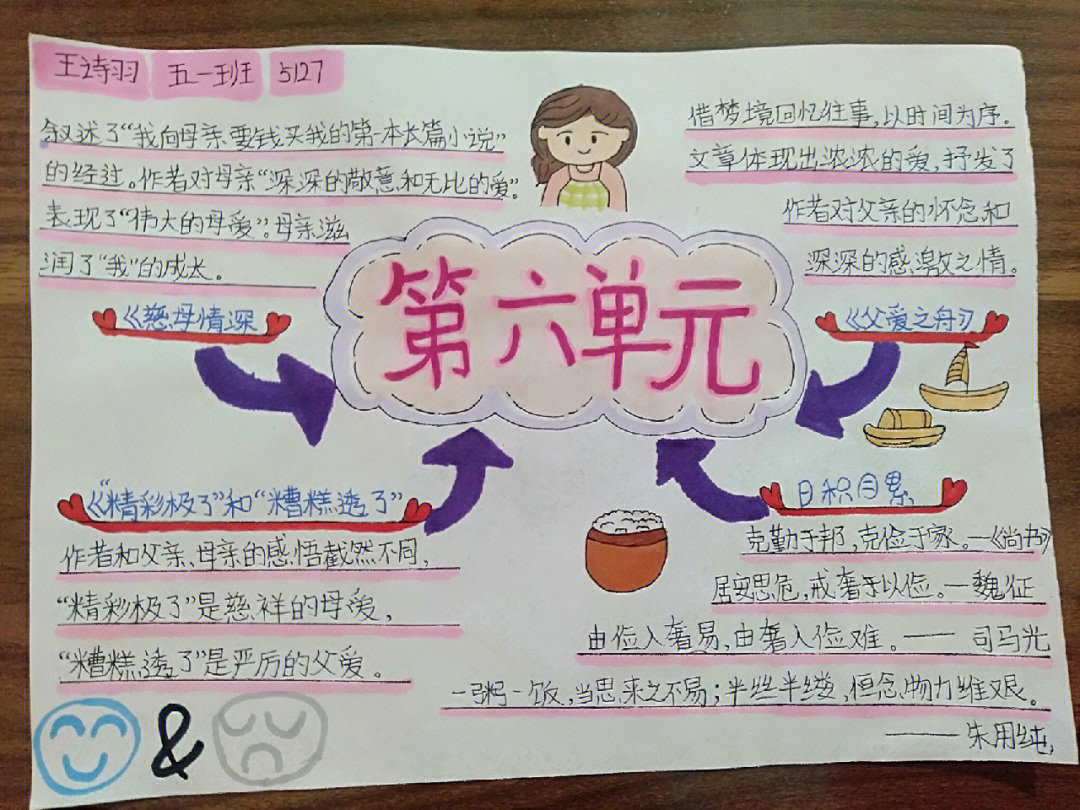 王诗羽 五一班 5127
叙述了“我向母亲要钱买我的第一本长篇小说”
的经过。作者对母亲“深深的敬意和无比的爱”。
表现了“伟大的母爱”。母亲滋
润了“我”的成长。
《慈母情深
借梦境回忆往事,以时间为序。
文章体现出浓浓的爱,抒发了
作者对父亲的怀念和
深深的感激之情。
《父爱之舟》
第六单元
《“精彩极了”和“糟糕透了”
作者和父亲、母亲的感悟截然不同,
“精彩极了”是慈祥的母爱,
“糟糕透了”是严厉的父爱。
&
日积月累
克勤于邦,克俭于家。—《尚书》
居安思危,戒奢于以俭。—魏征
由俭入奢易,由奢入俭难。—— 司马光
一粥一饭,当思来之不易;半丝半缕,恒念物力维艰。
—— 朱用纯